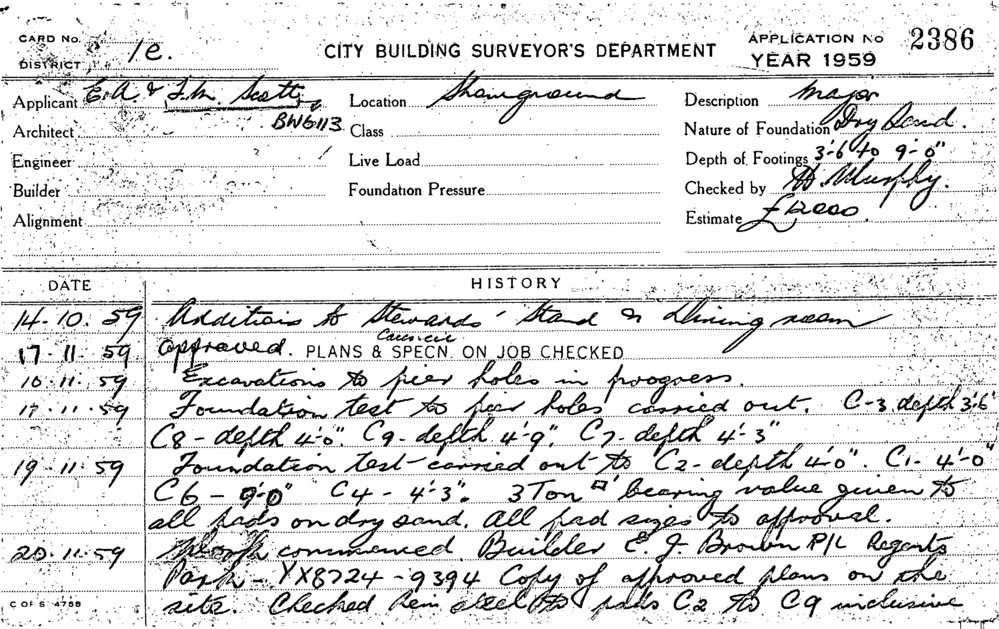 CARD No.
DISTRICT 1e.
CITY BUILDING SURVEYOR'S DEPARTMENT
APPLICATION No 2386
YEAR 1959
Applicant E. A. & F. M. Scott
Location Showground
Description Major
BW6113
Architect
Class
Nature of Foundation Dry Sand.
Engineer
Live Load
Depth of Footings 3'-6 to 9'-0"
Builder
Foundation Pressure
Checked by H. Murphy.
Alignment
Estimate £12000.
DATE HISTORY
14-10-59 Additions to Stewards' Stand & Dining room
Council
17-11-59 approved. PLANS & SPECN. ON JOB CHECKED
16-11-59 Excavations to pier holes in progress.
17-11-59 Foundation test to pier holes carried out. C-3 depth 3'-6"
C8 - depth 4'-0". C9 - depth 4'-9". C7 - depth 4'-3"
19-11-59 Foundation test carried out to C2 - depth 4'-0". C1 - 4'-0"
C6 - 9'-0" C4 - 4'-3". 3 Ton □' bearing value given to
all pads on dry sand. All pad sizes to approval.
20-11-59 commenced Builder E. J. Brown P/L Regents
Park - YX8724 - 9394 Copy of approved plans on the
site. Checked Rein steel to pads C2 to C9 inclusive
C OF S 4755